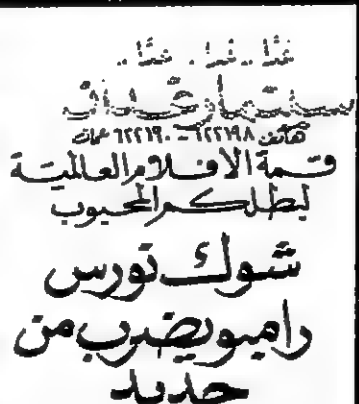 غدًا .. غدًا .. غدًا ..
سينما رغدان
هاتف ٦٢٢١٩٨ - ٦٢٢١٩٠ عمان
قمة الافلام العالمية
لبطلكم المحبوب
شوك تورس
رامبو يضرب من
جديد